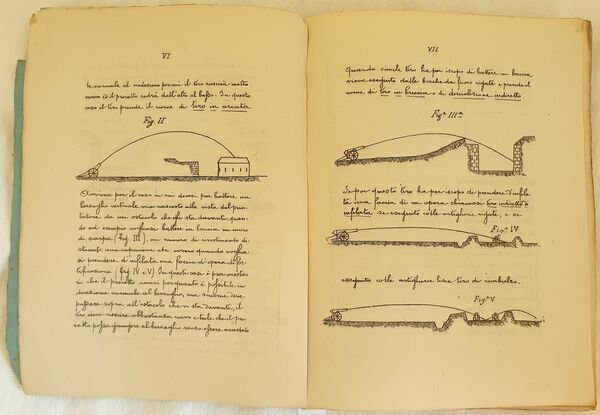 VI
te normale al medesimo perciò il tiro riescirà molto
curvo ed il proietto cadrà dall'alto al basso. In questo
caso il tiro prende il nome di tiro in arcata
Fig. II
Avviene poi il caso in cui devesi per battere un
bersaglio verticale ma nascosto alla vista del pun-
tatore da un ostacolo che gli sta davanti, quan-
do ad esempio vogliasi battere in breccia un muro
di scarpa (fig. III), un muro di rivestimento di-
staccato, una caponiera ecc. come quando voglia-
si prendere d'infilata una faccia d'opera di for-
tificazione (fig IV e V) In questi casi è per mestie-
ri che il proietto arrivi per quanto è possibile in
direzione normale al bersaglio, ma siccome deve
passare sopra all'ostacolo che vi sta davanti, il
tiro deve riescire abbastanza curvo e tale che il pro-
ietto possa giungere al bersaglio senza essere arrestato
VII
Quando simile tiro ha per iscopo di battere in breccia
viene eseguito dalle bocche da fuoco rigate e prende il
nome di tiro in breccia o di demolizione indiretto
Figª. IIIª.
Se poi questo tiro ha per iscopo di prendere d'infila-
ta una faccia di un'opera chiamasi tiro indiretto d'
infilata se eseguito colle artiglierie rigate, e se
Figª. IV
eseguito colle artiglierie liscie tiro di rimbalzo.
Figª. V